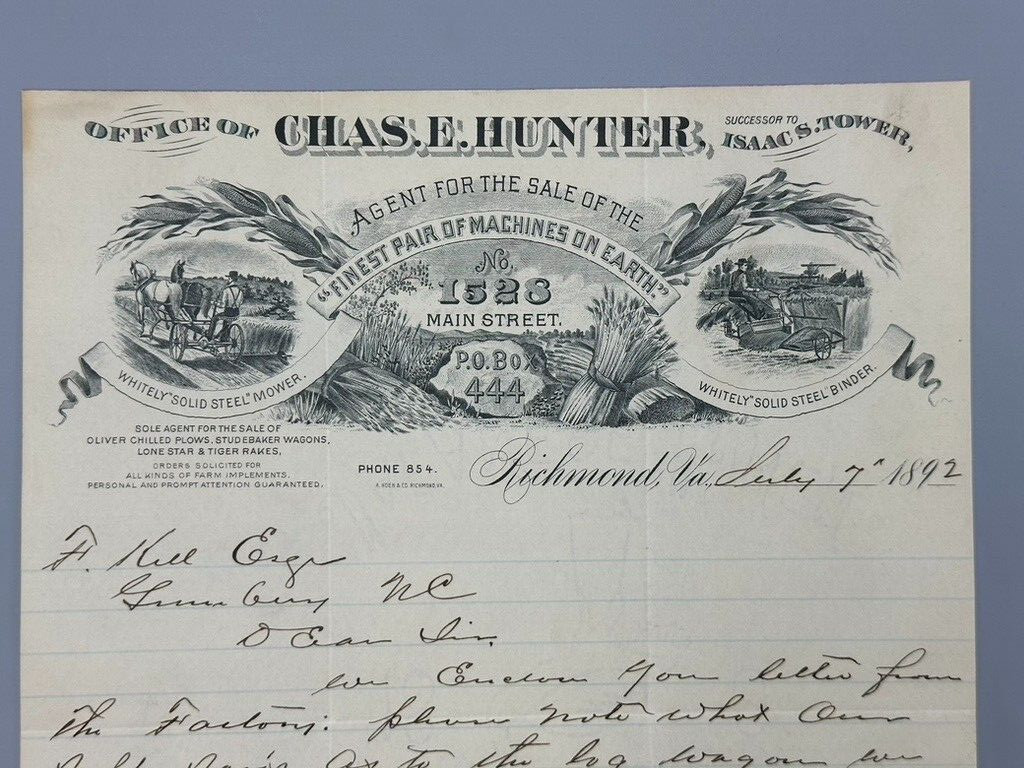 OFFICE OF CHAS. E. HUNTER, SUCCESSOR TO ISAAC S. TOWER,
AGENT FOR THE SALE OF THE
"FINEST PAIR OF MACHINES ON EARTH."
No.
1528
MAIN STREET.
P.O. BOX
444
WHITELY "SOLID STEEL" MOWER.
WHITELY "SOLID STEEL" BINDER.
SOLE AGENT FOR THE SALE OF
OLIVER CHILLED PLOWS, STUDEBAKER WAGONS,
LONE STAR & TIGER RAKES,
ORDERS SOLICITED FOR
ALL KINDS OF FARM IMPLEMENTS.
PERSONAL AND PROMPT ATTENTION GUARANTEED.
PHONE 854.
A. HOEN & CO. RICHMOND, VA.
Richmond, Va., July 7" 1892
F. Kell Esqr
NC
Dear Sir.
we Enclose you letter from
the Factory: please note what Our
as to the log wagon we